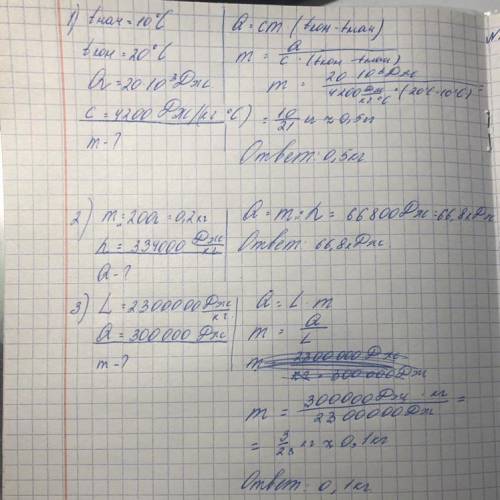 1) tнач = 10°C
tкон = 20°C
Q = 20·10³ Дж
c = 4200 Дж/(кг·°C)
m - ?
Q = cm (tкон - tнач)
m = Q / c · (tкон - tнач)
m = 20·10³ Дж / 4200 Дж/кг·°C · (20°C - 10°C) =
= 10/21 кг ≈ 0,5 кг
Ответ: 0,5 кг
2) m = 200г = 0,2 кг
h = 334000 Дж/кг
Q - ?
Q = m · h = 66800 Дж = 66,8 кДж
Ответ: 66,8 кДж
3) L = 2300000 Дж/кг
Q = 300000 Дж
m - ?
Q = L · m
m = Q / L
m = 300000 Дж · кг / 2300000 Дж =
= 3/23 кг ≈ 0,1 кг
Ответ: 0,1 кг